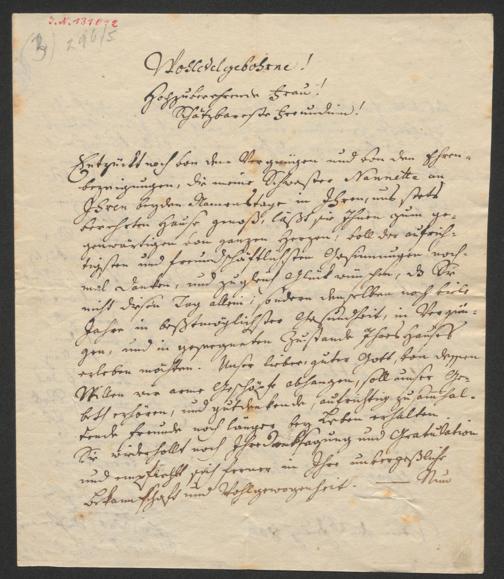 I.N. 131092
(3) 296/5
Wohledelgebohrne!
Hochzuverehrende Frau!
Schätzbareste Freundinn!
Entzückt noch von dem Vergnügen und von den Ehren-
bezeigungen, die meine Schwester Nannette an
Ihren beyden Namenstage in Ihren, uns stets
verehrten Hause genoß, läßt sie Ihnen zum ge-
genwärtigen von ganzen Herzen, voll der aufrich-
tigsten und freundschäftlichsten Gesinnungen noch-
mal danken, und zugleich Glück wünschen, daß Sie
nicht diesen Tag allein, sondern denselben noch viele
Jahre in bestmöglichster Gesundheit, in Vergnü-
gen, und in gesegneten Zustande Ihres Hauses
erleben möchten. Unser lieber, guter Gott, von dessen
Willen wir arme Geschöpfe abhangen, soll unser Ge-
beth erhören, und gutdenkende, aufrichtig zusamhal-
tende Freunde noch länger bey Leben erhalten.
Sie wiederhollt noch Ihre Danksagung und Gratulation
und empfiehlt sich ferner in Ihre unvergeßliche
Bekanntschaft und Wohlgewogenheit. — Nun